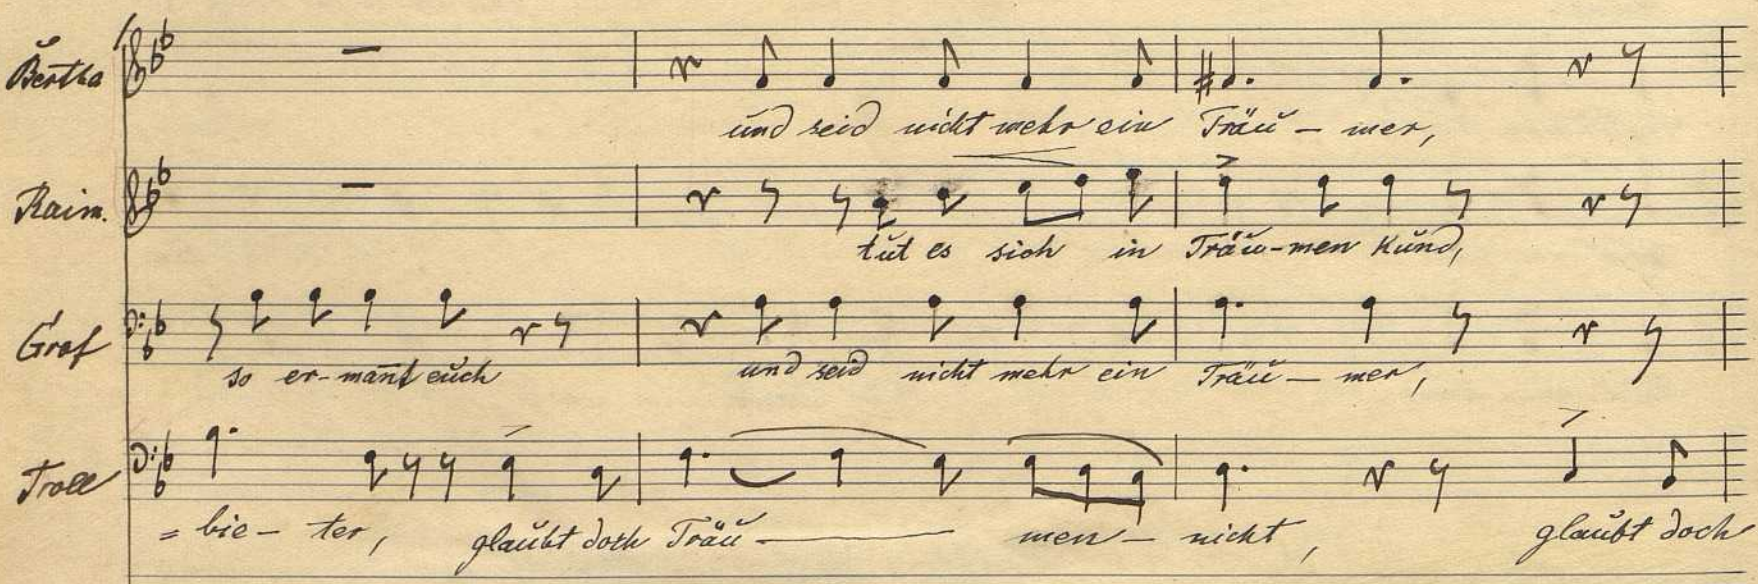 Bertha
und seid nicht mehr ein Träu - mer,
Raim.
tut es sich in Träu-men kund,
Graf
so er-mant euch und seid nicht mehr ein Träu - mer,
Troll
= bie - ter, glaubt doch Träu - men - nicht, glaubt doch